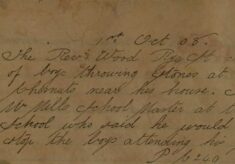 1st Oct 08.
The Revd Wood
of boys throwing Stones at
Chesnuts near his house.
Mr Mills School Master at
School who said he would
stop the boys attending